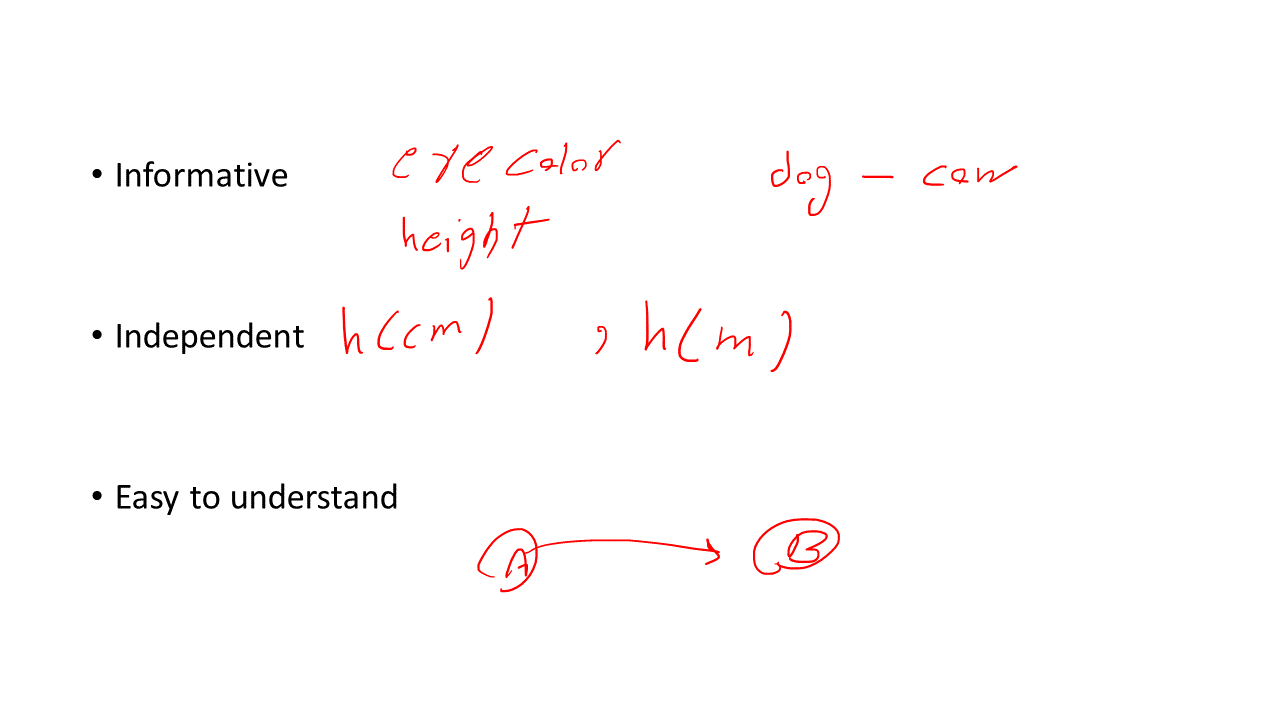 • Informative eye color dog - cow
height
• Independent h(cm) , h(m)
• Easy to understand
A → B